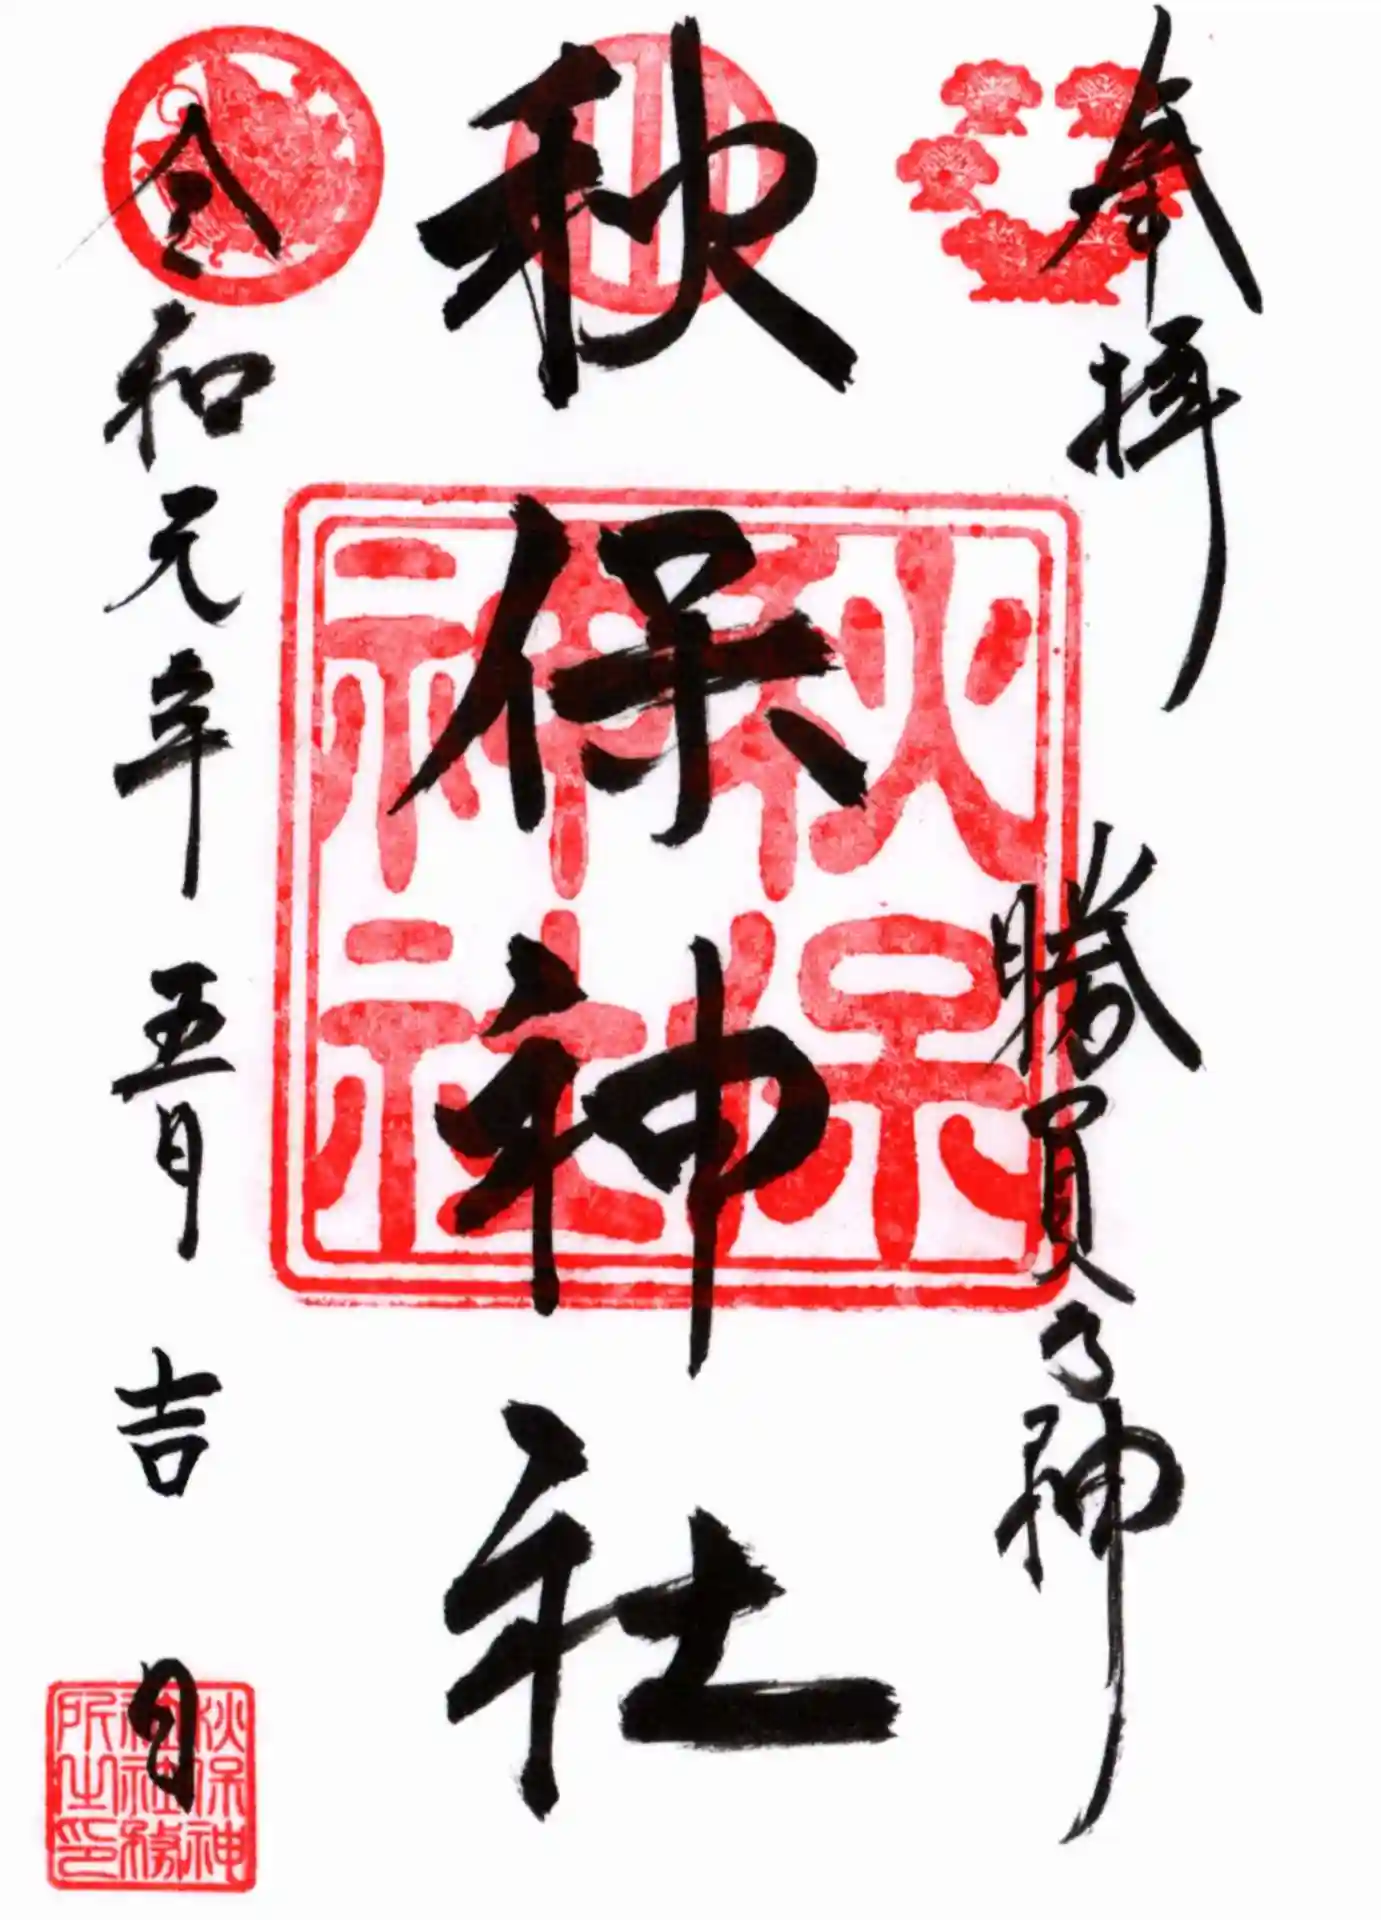 奉拝
勝負の神
秋保神社
秋保
神社
令和元年五月吉日
秋保神
社社務
所之印